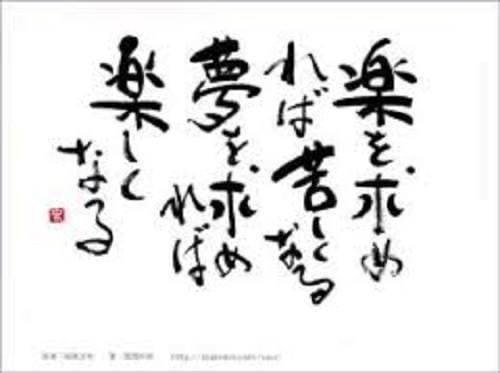 楽を求め
れば苦しくなる
夢を求め
れば
楽しく
なる